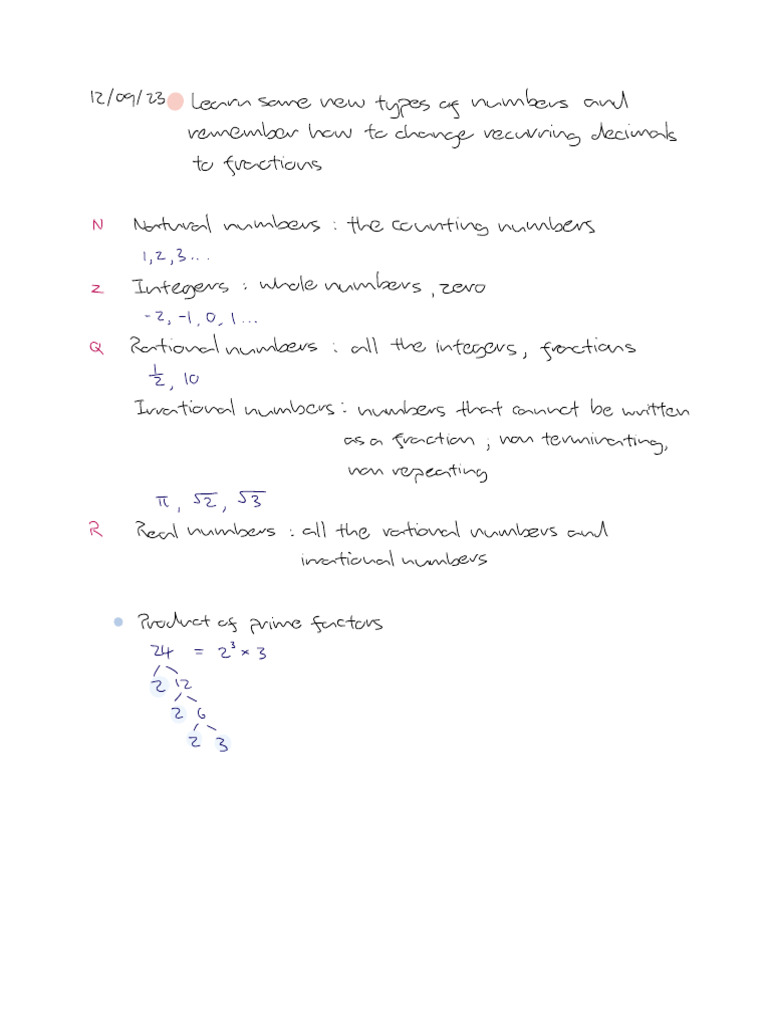 12/09/23 Learn some new types of numbers and
remember how to change recurring decimals
to fractions
N Natural numbers : the counting numbers
1, 2, 3 ...
Z Integers : whole numbers, zero
-2, -1, 0, 1 ...
Q Rational numbers : all the integers, fractions
1/2, 10
Irrational numbers : numbers that cannot be written
as a fraction ; non terminating,
non repeating
π, √2, √3
R Real numbers : all the rational numbers and
irrational numbers
Product of prime factors
24 = 2³ × 3
2 12
2 6
2 3